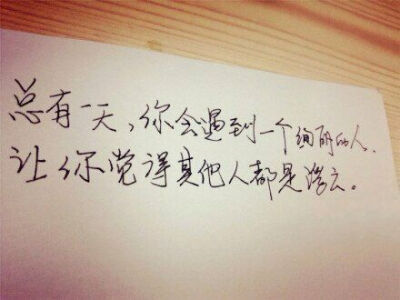 总有一天，你会遇到一个绚丽的人，
让你觉得其他人都是浮云。